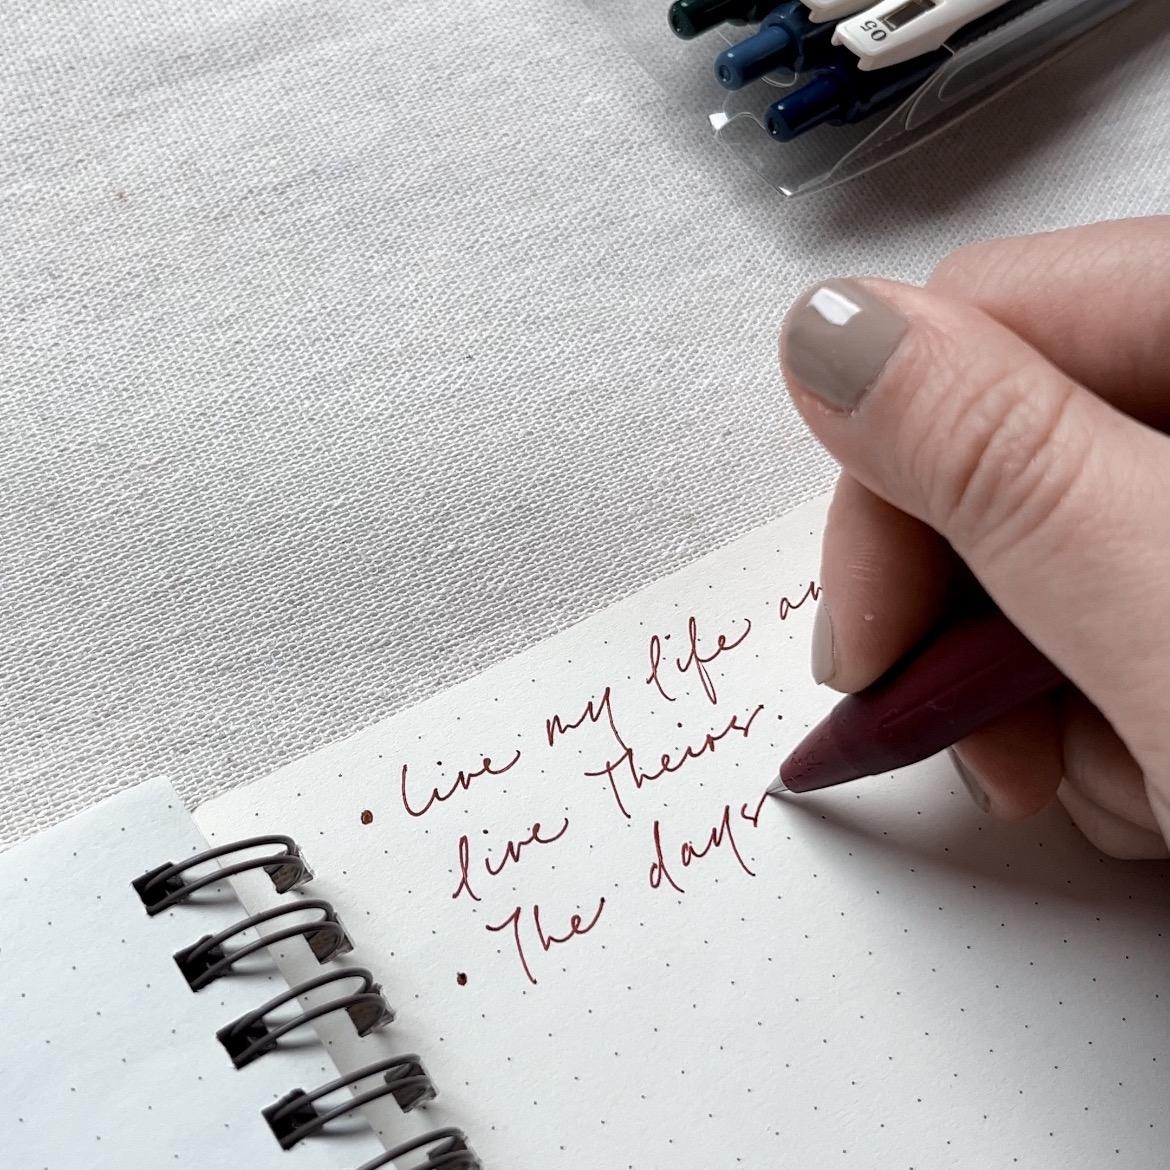 05
• live my life an
live Theirs.
• The days